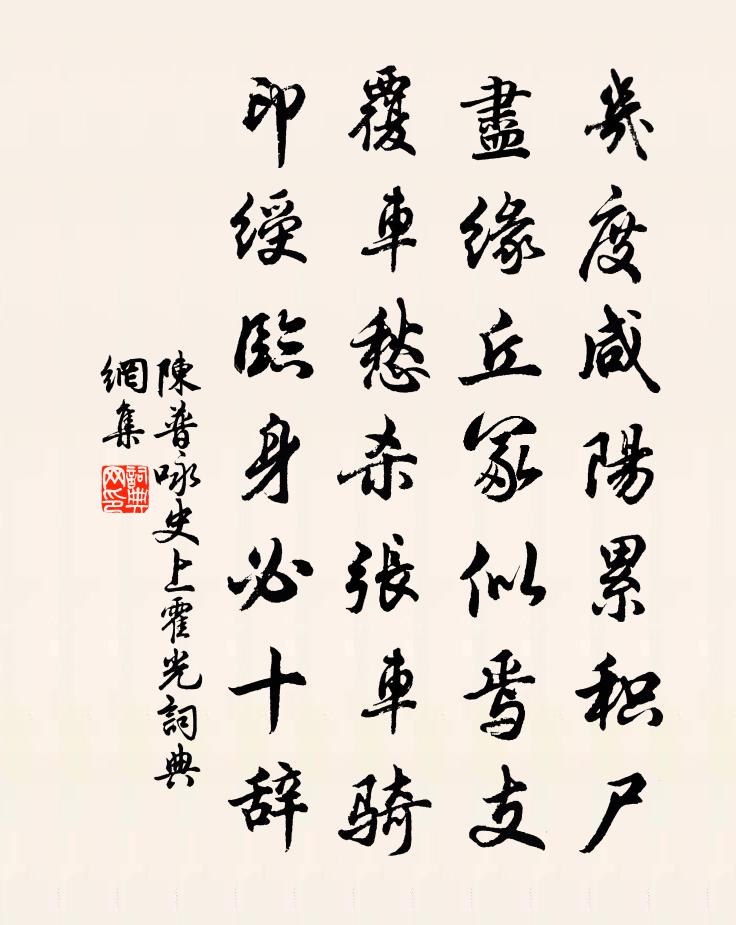 幾度咸陽累积尸
盡緣丘冢似焉支
覆車愁杀張車騎
印綬臨身必十辞
陳普咏史上霍光詞典
網集
詞典網印